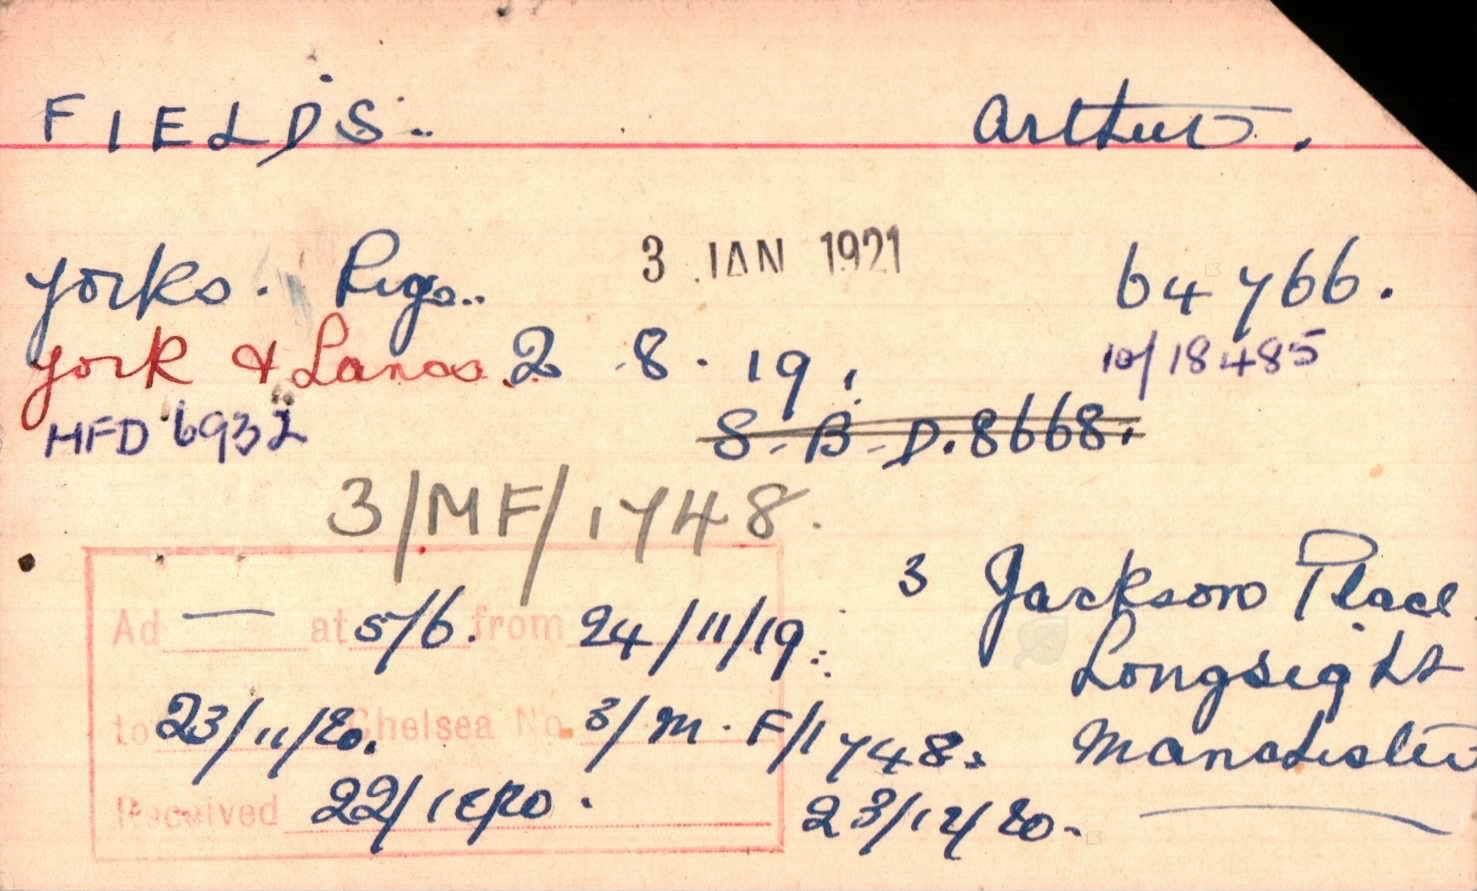 FIELDS. Arthur.
Yorks. Regs.. 3 JAN 1921 64766.
York & Lancs. 2 8. 19. 10/18485
MFD 6932 S.B.D.8668.
3/MF/1748.
3 Jackson Place
Ad — at 5/6. from 24/11/19.
Longsight
to 23/11/20. Chelsea No. 3/M.F/1748. Manchester
Received 22/12/20. 23/12/20.